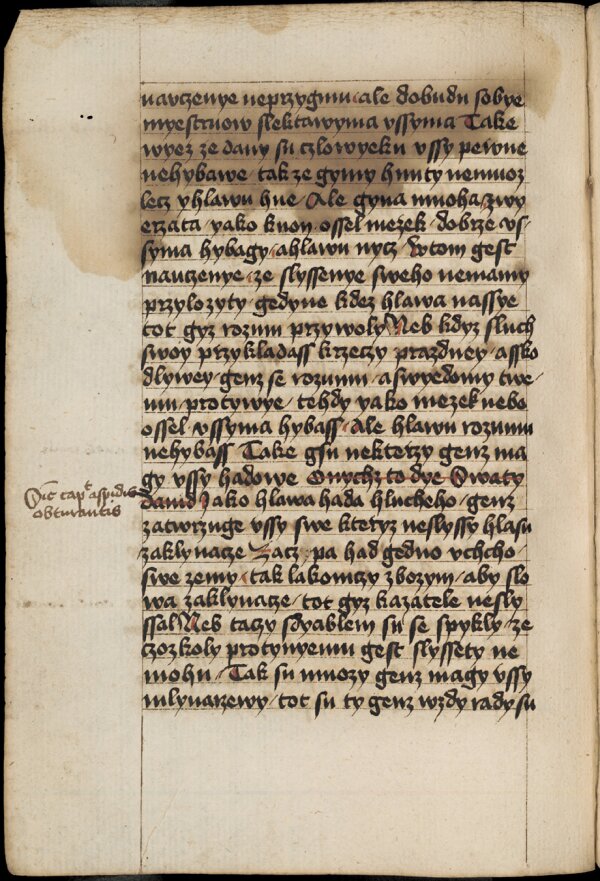 nauczenye neprzygmu ale dobudu sobye
myestruow slektawyma vssyma Take
wyez ze dany su czlowyeku vssy pewne
nehybawe tak ze gymy hnuty nemuoz
lecz yhlawu hne Ale gyna mnoha zwy
erzata yako kuon ossel mezek dobrze vs-
syma hybagy ahlawu nycz wtom gest
nauczenye ze slyssenye sweho nemamy
przylozyty gedyne kdez hlawa nassye
tot gyz rozum przywoly Neb kdyz sluch
swoy przykladass krzeczy prazdney assko
dlywey genz se rozumu aswyedomy twe
mu protywye tehdy yako mezek nebo
ossel vssyma hybass Ale hlawu rozumu
nehybass Take gsu nekterzy genz ma
gy vssy hadowe Onychz to dye Swaty
dauid Jako hlawa hada hlucheho genz
zatwrzuge vssy swe ktetyz neslyssy hlasu
zaklynacze Zacz pa had gedno vchcho
swe zemy tak lakomczy zbozym aby slo
wa zaklynacze tot gyz kazatele nesly
ssal Neb taczy sdyablem su se spykly ze
czozkoly protynyemu gest slyssety ne
mohu Tak su mnozy genz magy vssy
mlynarzewy tot su ty genz wzdy rady su
aspidis
obturantis